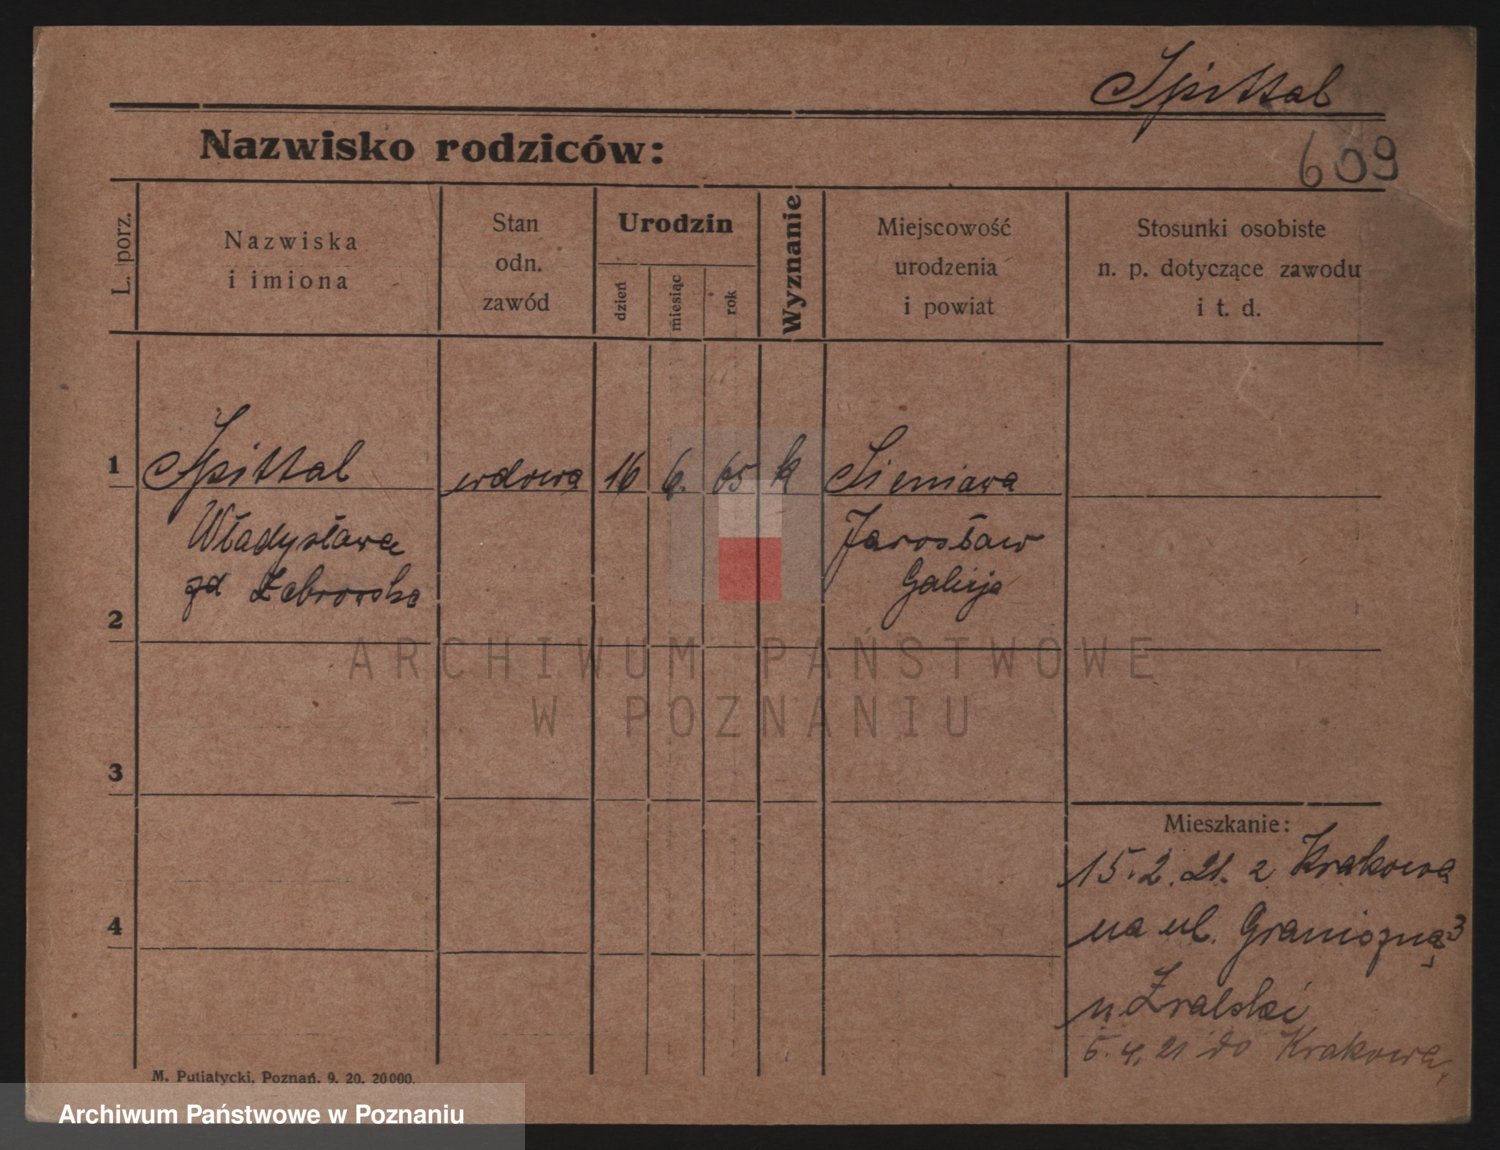 Spittal
Nazwisko rodziców:
609
L. porz.
Nazwiska
i imiona
Stan
odn.
zawód
Urodzin
dzień
miesiąc
rok
Wyznanie
Miejscowość
urodzenia
i powiat
Stosunki osobiste
n. p. dotyczące zawodu
i t. d.
1 Spittal wdowa 16 6. 65 k Sieniawa
Władysława Jarosław
zd Żebrowska Galicja
2
ARCHIWUM PAŃSTWOWE
W POZNANIU
3
Mieszkanie:
15.2.21. z Krakowa
4
na ul. Graniczną 3
u
5.4.21 do Krakowa,
M. Putiatycki, Poznań. 9. 20. 20000.
Archiwum Państwowe w Poznaniu